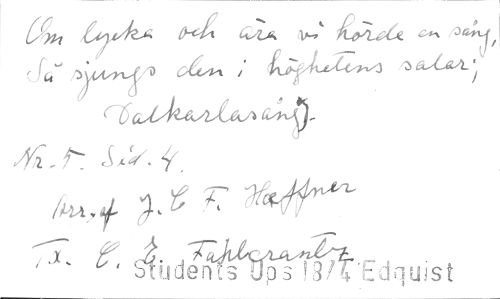 Om lycka och ära vi hörde en sång,
Så sjungs den i höghetens salar;
Dalkarlasång).
Nr. 5. Sid. 4.
Arr. af J. C F. Hæffner
Tx. C. E. Fahlcrantz
Students Ups 18/4 Edquist